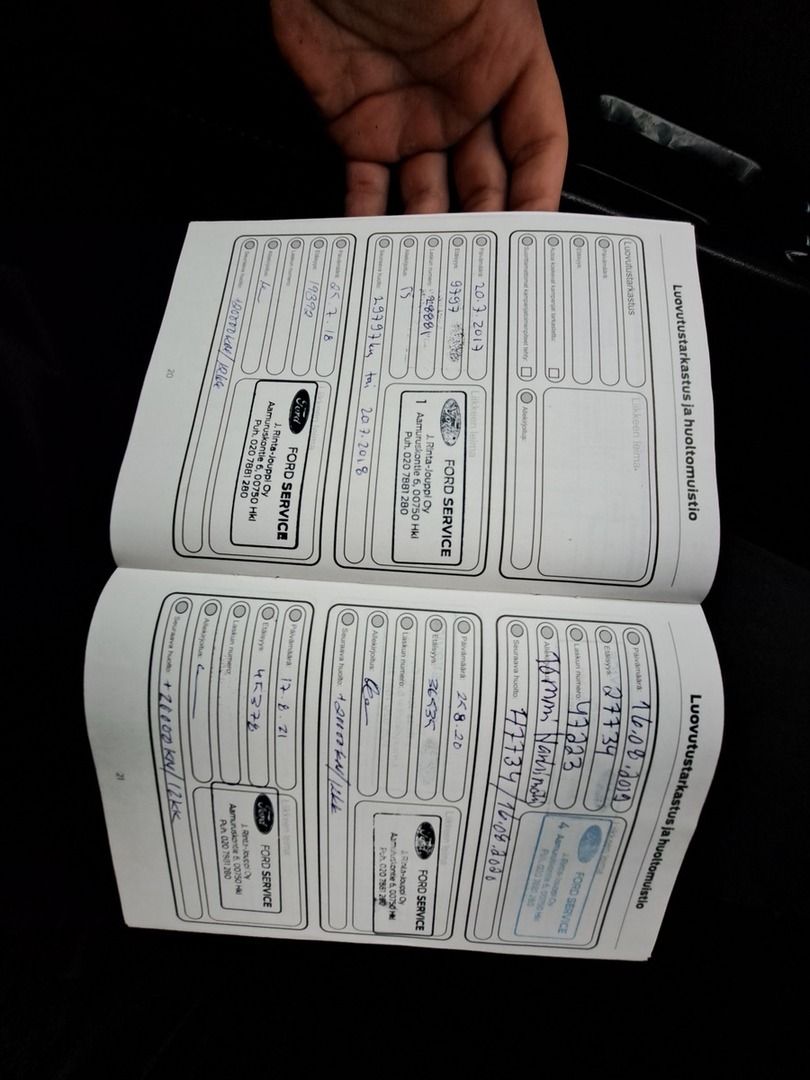 Luovutustarkastus ja huoltomuistio
Luovutustarkastus
Päivämäärä:
Etäisyys:
Autoa koskevat kampanjat tarkastettu:
Suorittamattomat kampanjatoimenpiteet tehty:
Liikkeen leima:
Allekirjoitus:
Päivämäärä: 20.7.2017
Etäisyys: 9797
Laskun numero:
Allekirjoitus:
Seuraava huolto: 29797km tai 20.7.2018
Liikkeen leima
Ford FORD SERVICE
1 J. Rinta-Jouppi Oy
Aamuruskontie 6, 00750 Hki
Puh. 020 7881 280
Päivämäärä: 25.7.18
Etäisyys: 19392
Laskun numero:
Allekirjoitus:
Seuraava huolto:
Ford FORD SERVICE
J. Rinta-Jouppi Oy
Aamuruskontie 6, 00750 Hki
Puh. 020 7881 280
20
Luovutustarkastus ja huoltomuistio
Päivämäärä: 16.08.2019
Etäisyys: 27734
Laskun numero: 47223
Seuraava huolto: 47734/16.08.2020
FORD SERVICE
4 J. Rinta-Jouppi Oy
Aamuruskontie 6, 00750 Hki
Puh. 020 7881 280
Päivämäärä: 25.8.20
Etäisyys: 36535
Laskun numero:
Allekirjoitus:
Seuraava huolto:
Liikkeen leima
FORD SERVICE
J. Rinta-Jouppi Oy
Aamuruskontie 6, 00750 Hki
Puh. 020 7881 280
Päivämäärä: 17.8.21
Etäisyys: 45378
Laskun numero:
Allekirjoitus:
Seuraava huolto: +20000KM/12KK
Liikkeen leima
Ford FORD SERVICE
J. Rinta-Jouppi Oy
Aamuruskontie 6, 00750 Hki
Puh. 020 7881 280
21